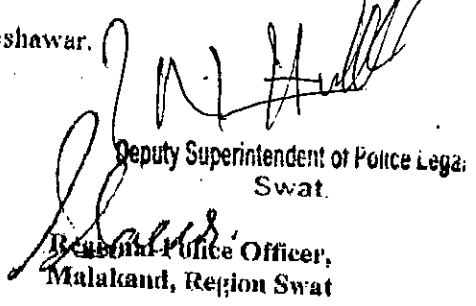 shawar.
Deputy Superintendent of Police Legal
Swat.
Regional Police Officer,
Malakand, Region Swat